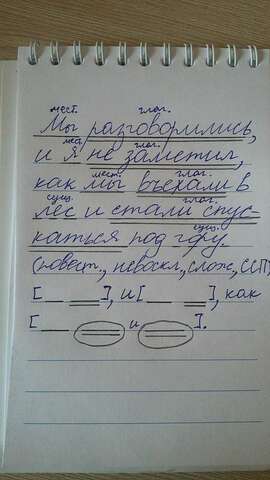 мест. глаг.
Мы разговорились,
мес. глаг.
и Я не заметил,
мест. глаг.
как мы въехали в
сущ. глаг.
лес и стали спус-
сущ.
каться под гору.
(повест., невоскл., слож., ССП)
[ __ == ], и [ __ == ], как
[ __ == и == ].